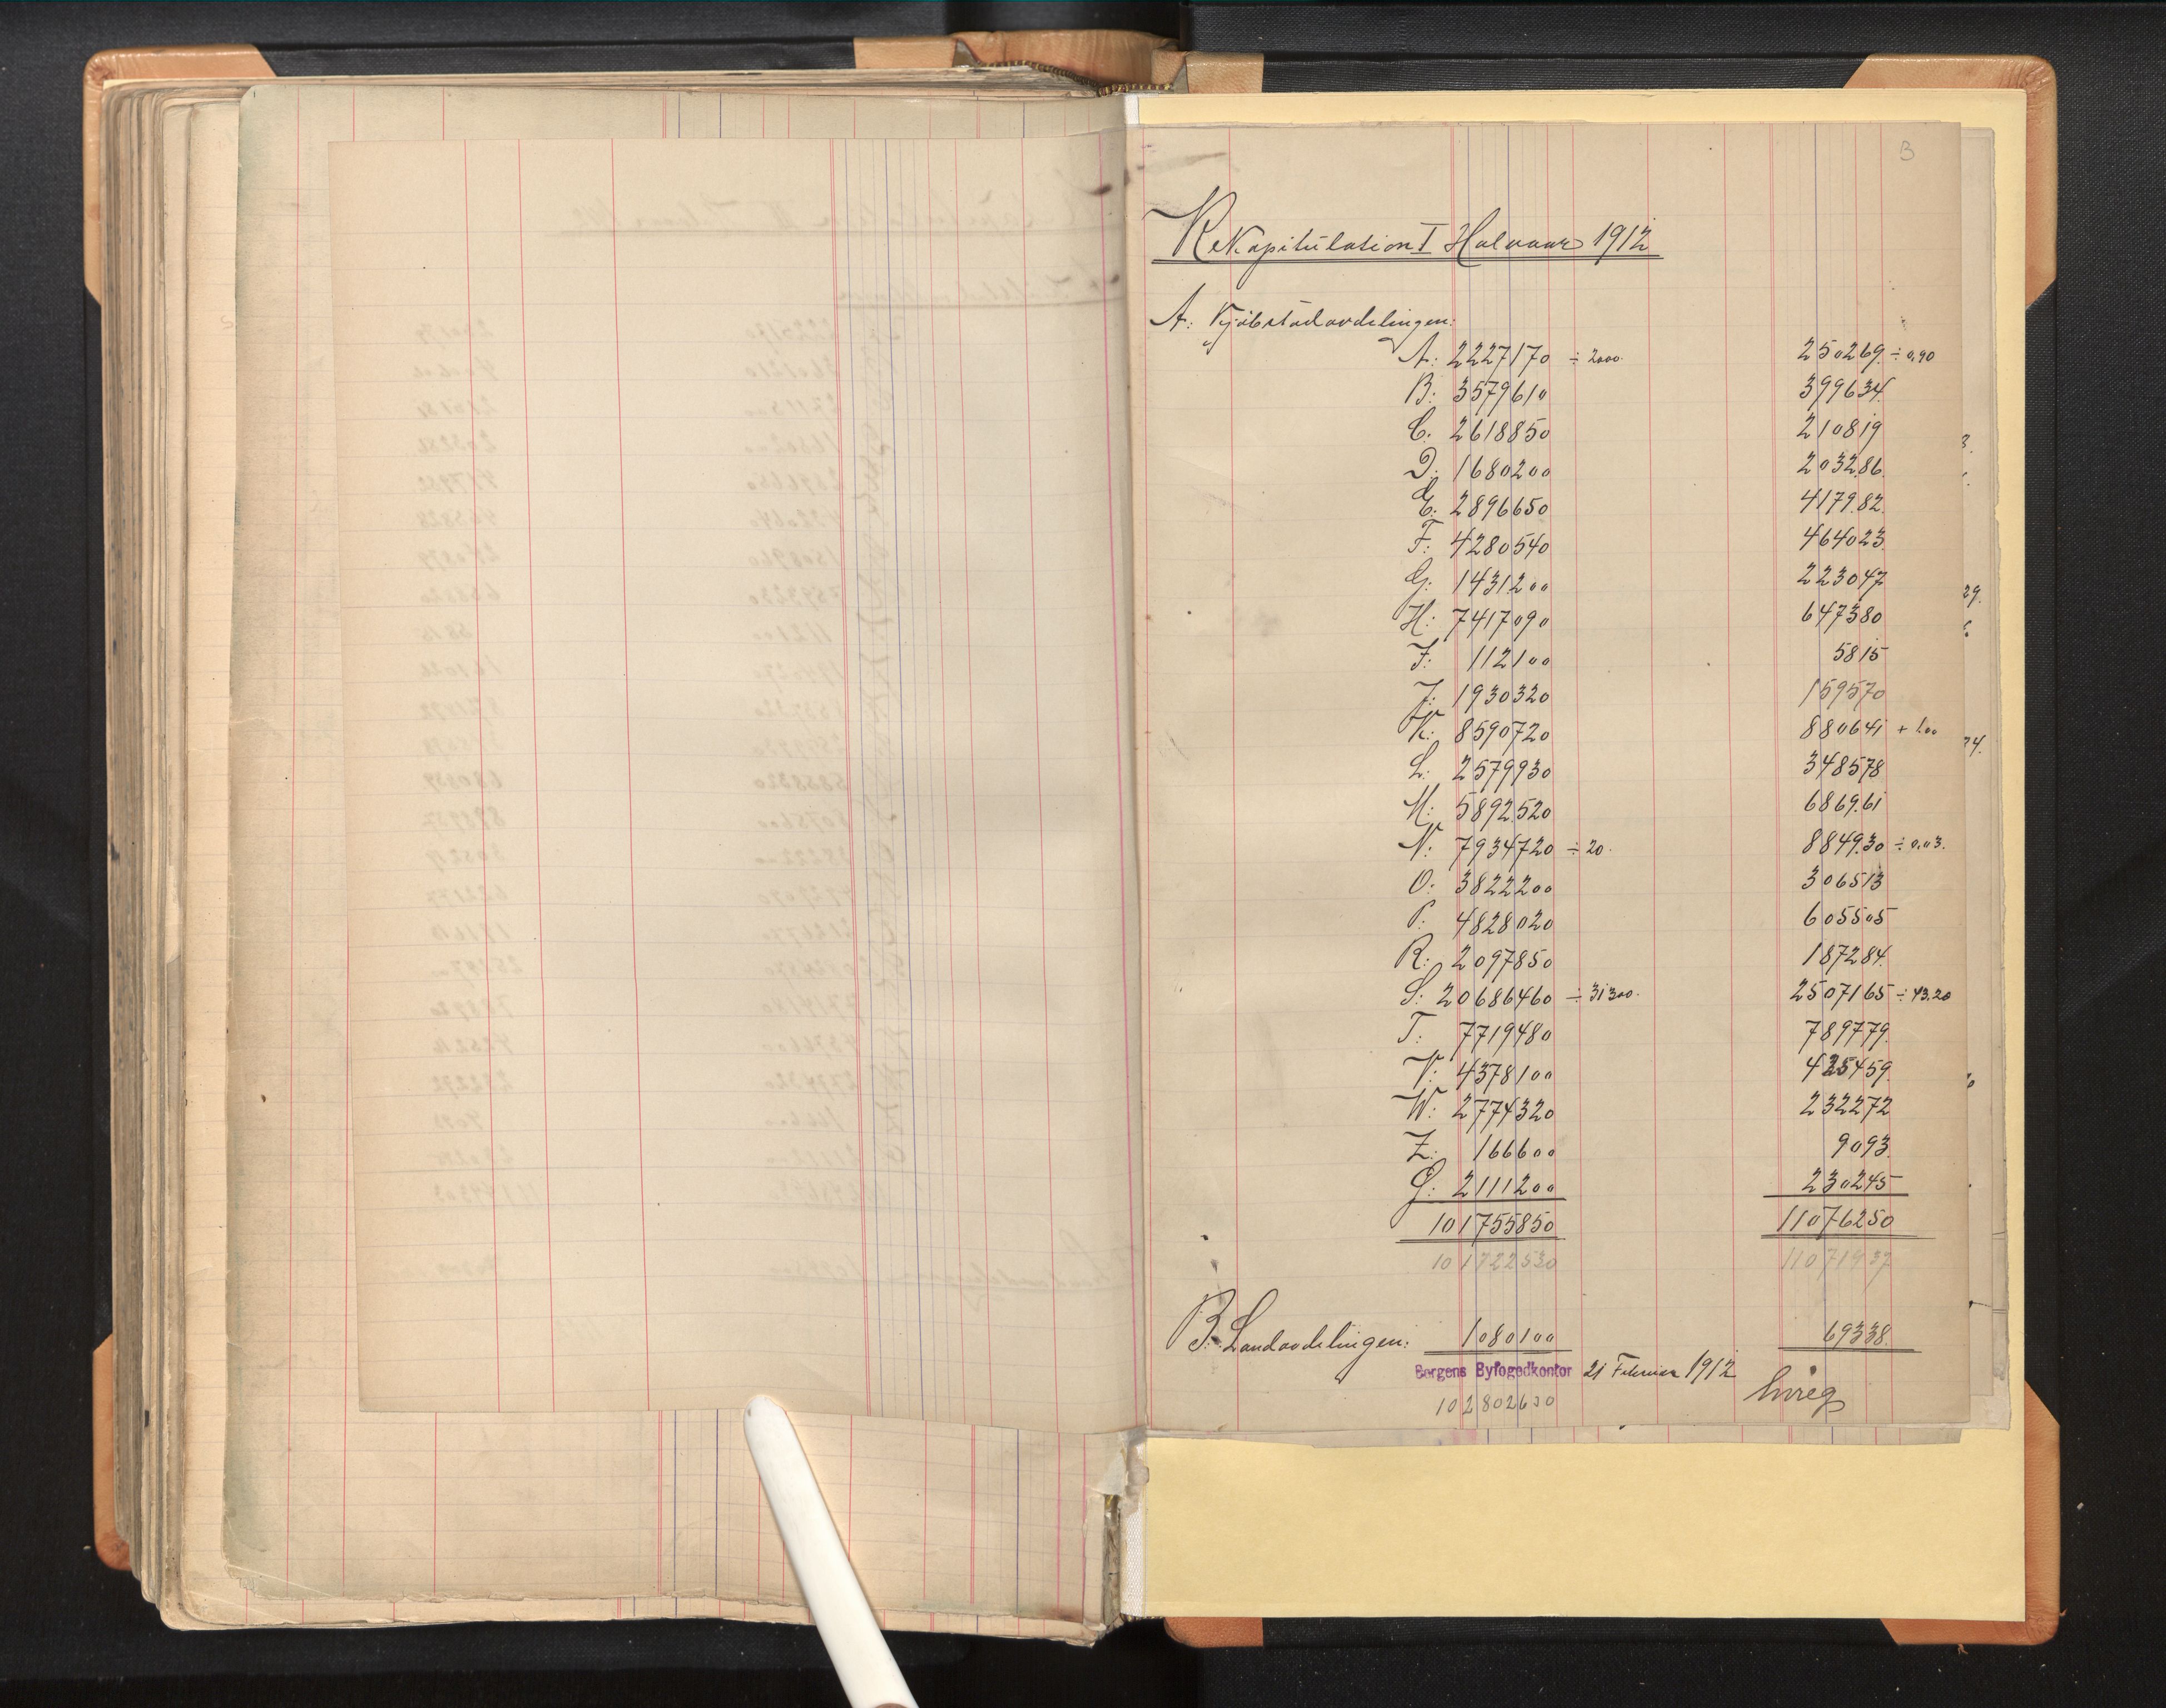 3
Rekapitulation I Halvaar 1912
A: Kjöbstadavdelingen:
A: 2227170 ÷ 2000. 250269. ÷ 0,90
B: 3579610 399634.
C. 2618850 210819
D: 1680200 203286.
E: 2896650 417982.
F: 4280540 464023
G: 1431200 223047
H: 7417090 647380
I: 112100 5815
J: 1930320 159570
K: 8590720 880641 + 1.00
L: 2579930 348578
M: 5892520 686961
N: 7934720 ÷ 20. 884930 ÷ 0,03.
O: 3822200 306513
P: 4828020 605505
R: 2097850 187284.
S: 20686460 ÷ 31300. 2507165 ÷ 43.20
T: 7719480 789779.
V: 4378100 425459.
W: 2774320 232272
Z: 166600 9093.
Ø: 2111200 230245
101755850 11076250
101722530 11071937
B: Landavdelingen: 1080100 69338.
Bergens Byfogedkontor 21 Februar 1912
102802630